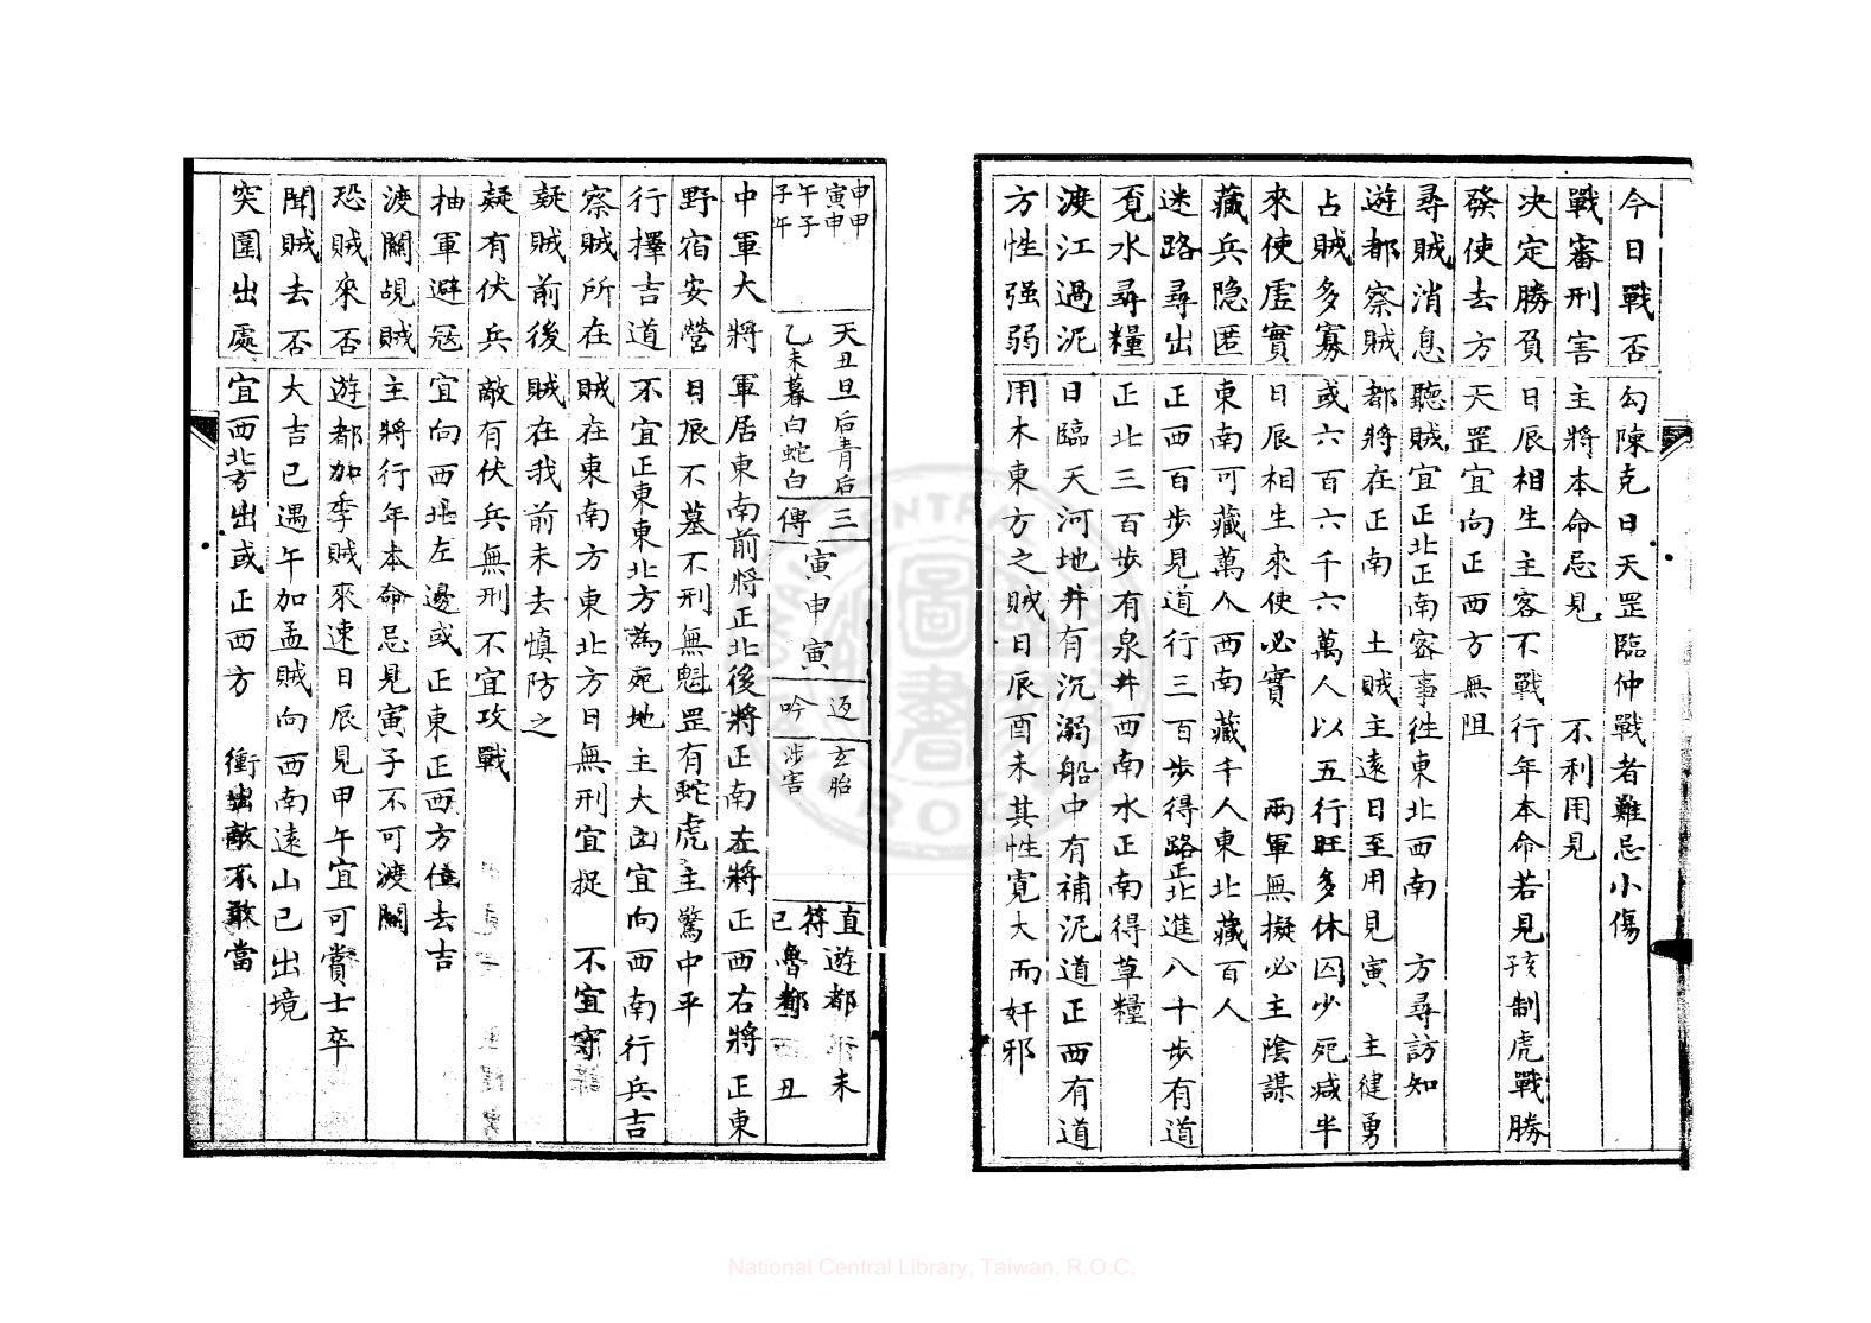 今日戰否 勾陳克日天罡臨仲戰者難忌小傷
戰審刑害 主將本命忌見 不利用見
决定勝負 日辰相生主客不戰行年本命若見孩制虎戰勝
發使去方 天罡宜向正西方無阻
尋賊消息 聽賊宜正北正南密事徃東北西南 方尋訪知
遊都察賊 都將在正南 土賊主遠日至用見寅 主徤勇
占賊多寡 或六百六千六萬人以五行旺多休囚少死减半
來使虛實 日辰相生來使必實 兩軍無擬必主陰謀
藏兵隐匿 東南可藏萬人西南藏千人東北藏百人
迷路尋出 正西百步見道行三百步得路正北進八十步有道
覓水尋糧 正北三百步有泉井西南水正南得草糧
渡江過泥 日臨天河地井有沉溺船中有補泥道正西有道
方性强弱 用木東方之賊日辰酉未其性寛大而奸邪
申甲
寅申
午子
子午
天丑旦后青后
乙未暮白蛇白
三傳
寅申寅
返吟
玄胎
涉害
直符巳
遊都 未
魯都 丑
中軍大將 軍居東南前將正北後將正南左將正西右將正東
野宿安營 日辰不墓不刑無魁罡有蛇虎主驚中平
行擇吉道 不宜正東東北方為死地主大凶宜向西南行兵吉
察賊所在 賊在東南方東北方日無刑宜捉 不宜守
疑賊前後 賊在我前未去慎防之
疑有伏兵 敵有伏兵無刑不宜攻戰
抽軍避冦 宜向西北左邊或正東正西方位去吉
渡關覘賊 主將行年本命忌見寅子不可渡關
恐賊來否 遊都加季賊來速日辰見甲午宜可賞士卒
聞賊去否 大吉已過午加孟賊向西南遠山已出境
突圍出處 宜西北方出或正西方 衝出敵不敢當
National Central Library, Taiwan, R.O.C.